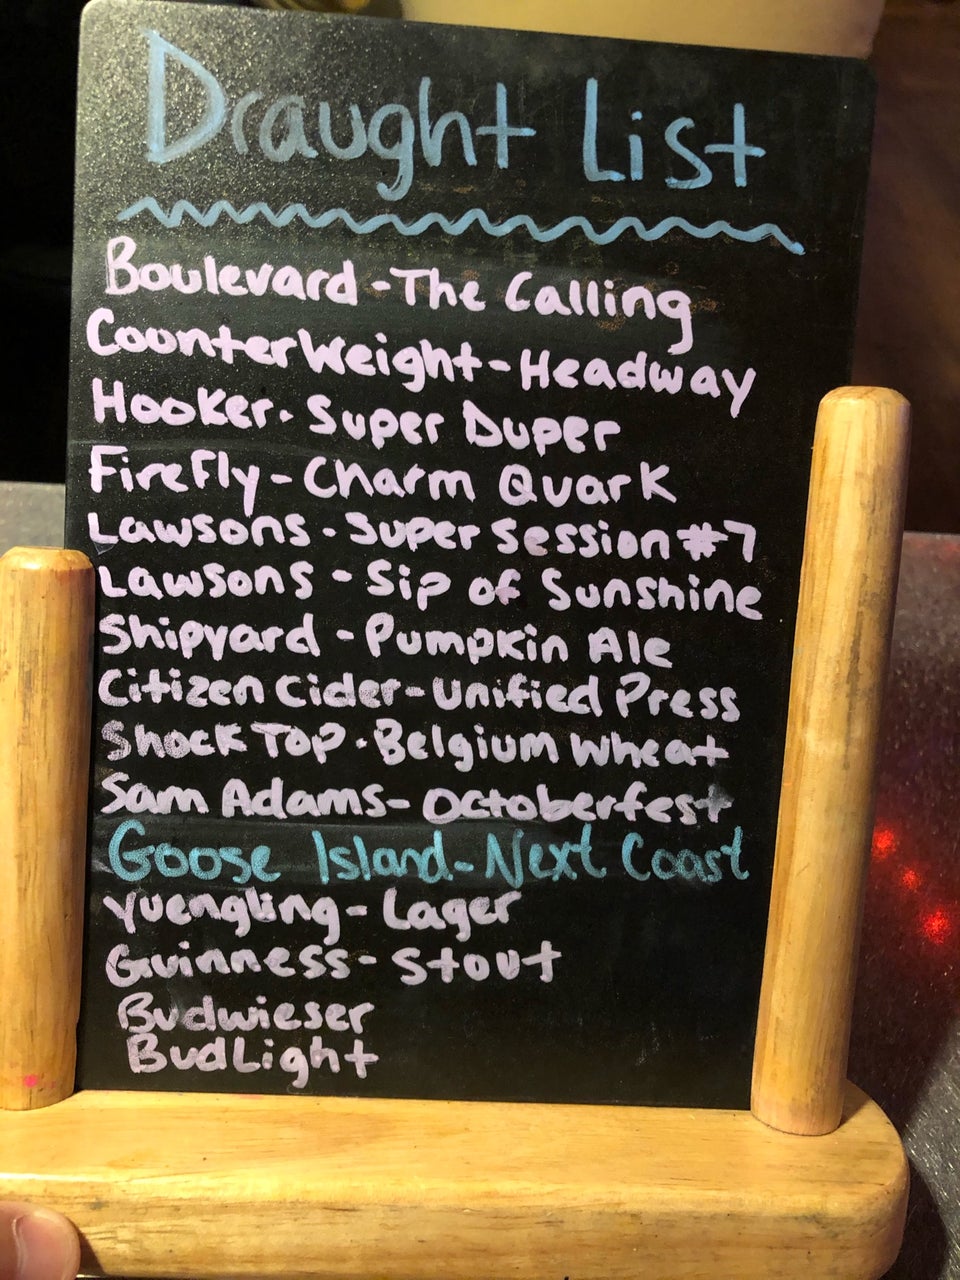 Draught List
Boulevard - The Calling
CounterWeight - Headway
Hooker - Super Duper
Firefly - Charm Quark
Lawsons - Super Session #7
Lawsons - Sip of Sunshine
Shipyard - Pumpkin Ale
Citizen Cider - Unified Press
Shock Top - Belgium Wheat
Sam Adams - Octoberfest
Goose Island - Next Coast
Yuengling - Lager
Guinness - Stout
Budwieser
BudLight